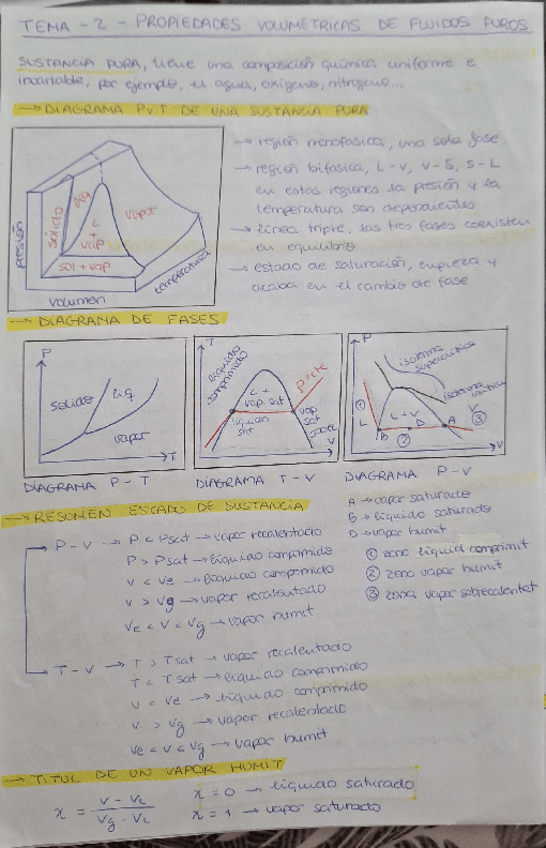 TEMA - 2 - PROPIEDADES VOLUMETRICAS DE FLUIDOS PUROS
SUSTANCIA PURA, tiene una composición química uniforme e
invariable, por ejemplo, el agua, oxígeno, nitrógeno...
→ DIAGRAMA PVT DE UNA SUSTANCIA PURA
presión
sólido
liq
L + vap
vapor
sol + vap
volumen
temperatura
→ región monofásica, una sola fase
→ región bifásica, L-V, V-S, S-L
en estas regiones la presión y la
temperatura son dependientes
→ línea triple, las tres fases coexisten
en equilibrio
→ estado de saturación, empieza y
acaba en el cambio de fase
→ DIAGRAMA DE FASES
P
sólido
liq.
vapor
T
DIAGRAMA P - T
T
líquido comprimido
L + vap. sat
P = cte
líquido sat
vap sat
V
DIAGRAMA T - V
P
isoterma supercrítica
isoterma crítica
①
L
L+V
V
③
B
D
A
②
V
DIAGRAMA P - V
A → vapor saturado
B → líquido saturado
D → vapor humit
① zona líquid comprimit
② zona vapor humit
③ zona vapor sobrecalentat
→ RESUMEN ESTADO DE SUSTANCIA
P - V → P < Psat → vapor recalentado
P > Psat → líquido comprimido
v < ve → líquido comprimido
v > vg → vapor recalentado
ve < v < vg → vapor humit
T - V → T > Tsat → vapor recalentado
T < Tsat → líquido comprimido
v < ve → líquido comprimido
v > vg → vapor recalentado
ve < v < vg → vapor humit
→ TITUL DE UN VAPOR HUMIT
x = (v - vL) / (vg - vL)
x = 0 → líquido saturado
x = 1 → vapor saturado